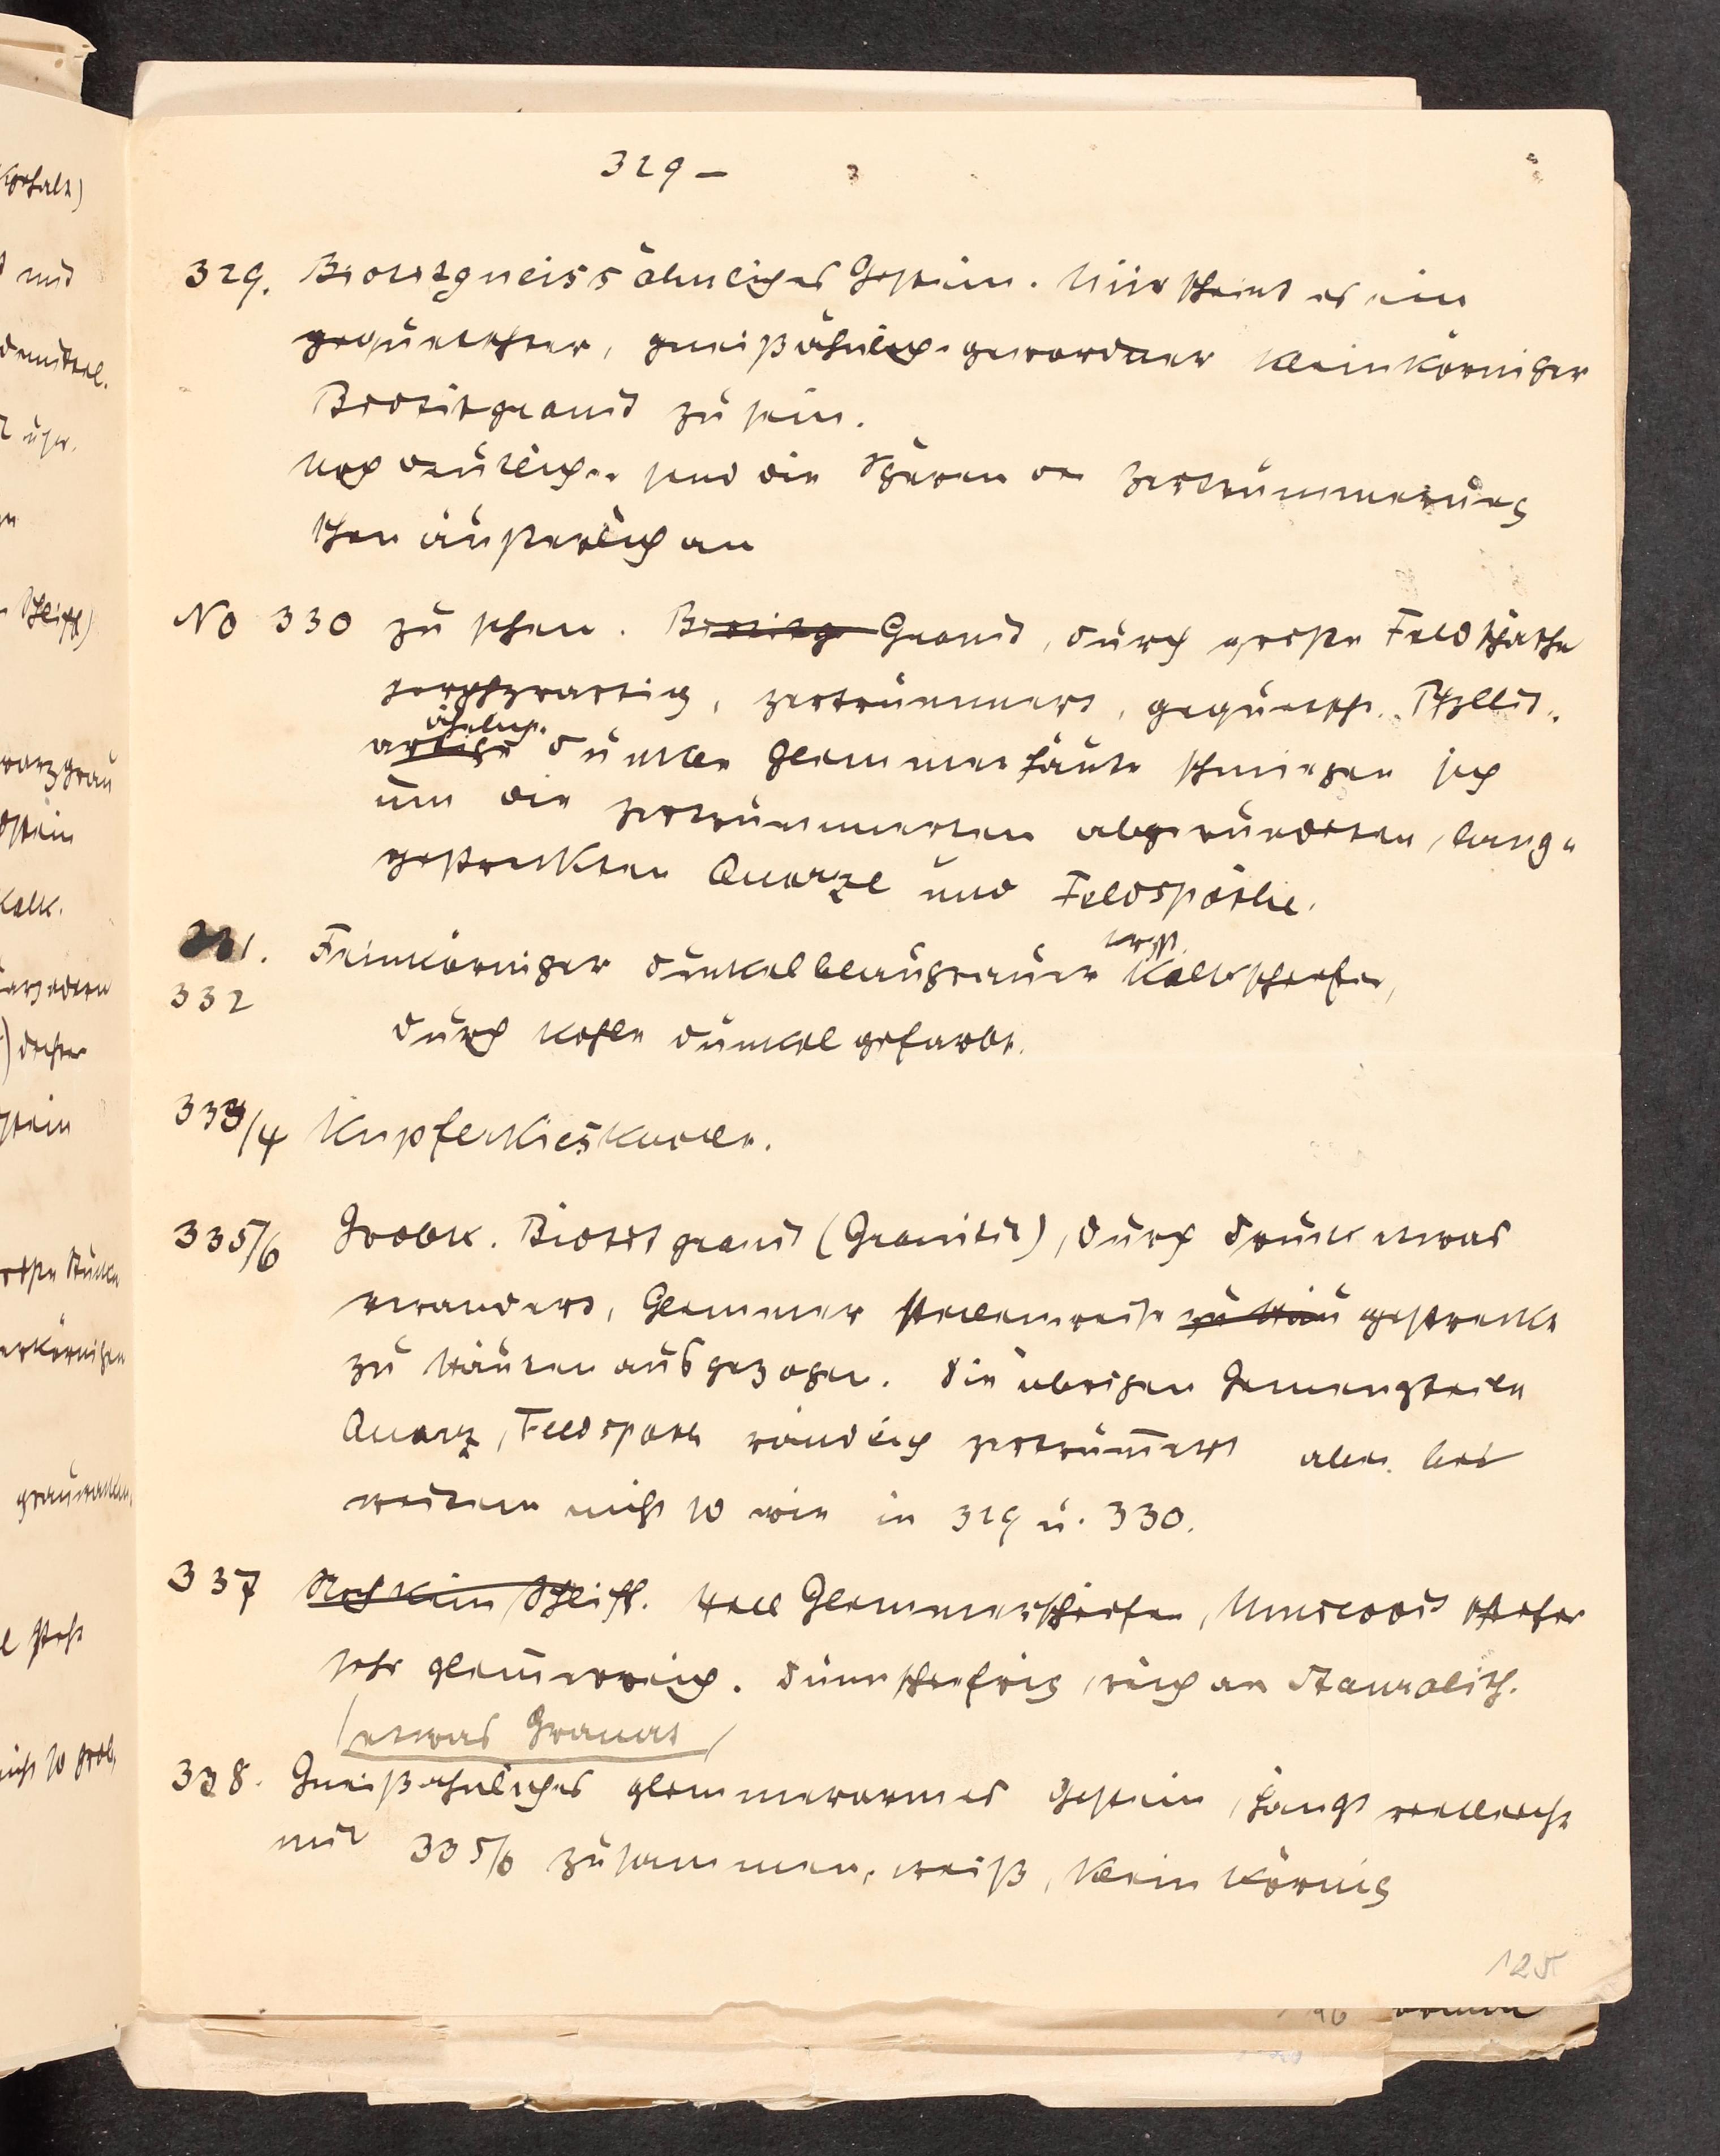 329 –
329. Biotitgneissähnliches Gestein. Mir scheint es ein
gequetschter, gneißähnlich gewordner kleinkörniger
Biotitgranit zu sein.
Noch deutlicher sind die Spuren der Zertrümmerung
schon äußerlich an
No 330 zu sehen. Biotitg Granit, durch große Feldspäthe
porphyrartig, zertrümmert, gequetscht. Phyllit-
ähnliche
artige dunkle Glimmerhäute schmiegen sich
um die zertrümmerten abgerundeten, lang-
gestreckten Quarze und Feldspäthe.
331. Feinkörniger dunkelblaugrauer Kalkschiefer,
332
durch Kohle dunkel gefärbt.
333/4 Kupferkiesknolle.
335/6 Grobk. Biotitgranit (Granitit), durch Druck etwas
verändert, Glimmer stellenweise zu Häu gestreckt
zu Häuten ausgezogen. Die übrigen Gemengteile
Quarz, Feldspath randlich zertrüm̅ert aber bei
weitem nicht so wie in 329 u. 330.
337 Noch kein Schliff. Hell Glimmerschiefer, Muscovitschiefer
sehr glim̅erreich. Dünnschiefrig, reich an Staurolith.
(etwas Granat)
338. Gneißähnliches glimmerarmes Gestein, hängt vielleicht
mit 335/6 zusammen, weiß, kleinkörnig
125